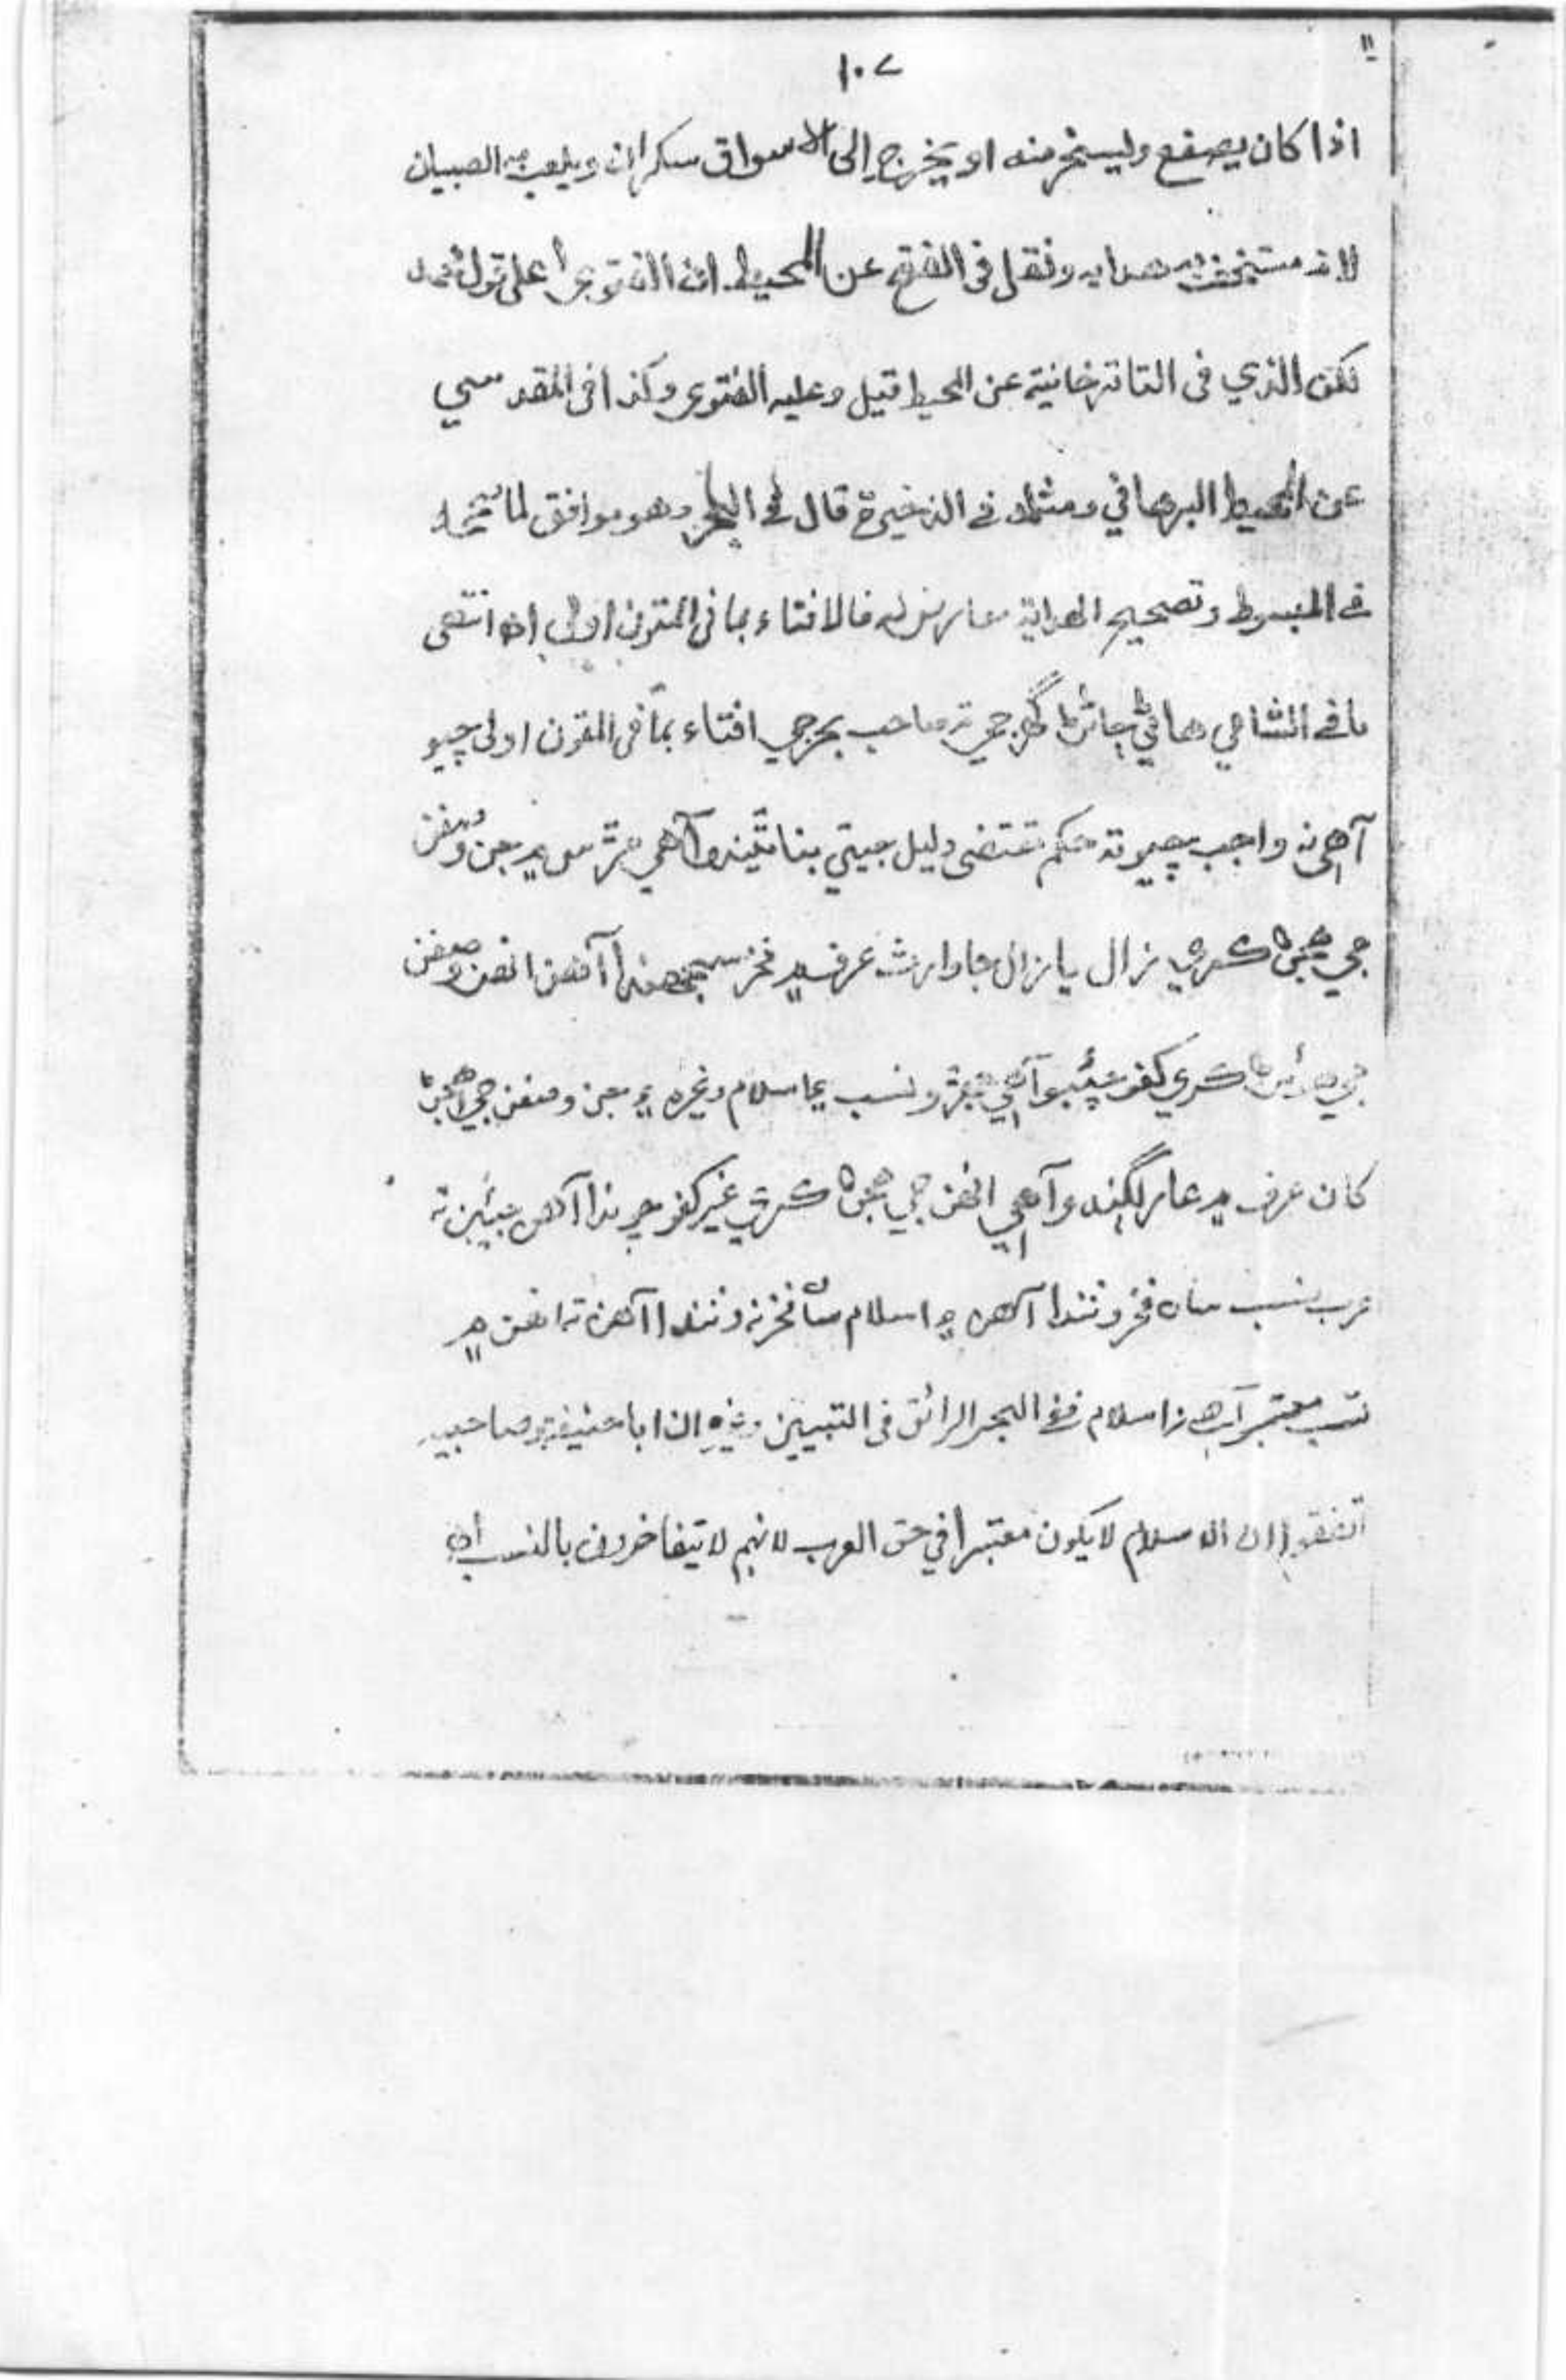 ١٠٧
اذا كان يصفع ويسخر منه او يخرج إلى الاسواق سكران ويلعب به الصبيان
لانه مستخف به هدايه ونقل في الفتح عن المحيط ان الفتوى على قول محمد
لكن الذي في التاتر خانية عن المحيط قيل وعليه الفتوى وكذا في المقدسي
عن المحيط البرهاني ومثله في الذخيرة قال في البحر وهو موافق لما صححه
في المبسوط وتصحيح الهداية معارض له فالافتاء بما في المتون اولى اه انتهى
ما في الشامي هاڻي ڄاڻڻ گهرجي ته صاحب بحر جي افتاء بما في المتون اولى چيو
آهي نه واجب چيو ته حكم مقتضى دليل جيتي بنا ٿيندو آهي ۾ جن وصفن
جي هجڻ ڪري زال يا زال جا وارث عرف ۾ فخر سمجهندا آهن انهن وصفن
جي هوئڻ ڪري كفو چئبو آهي نسب يا اسلام وغيره ۽ جن وصفن جي نه هجڻ
كان عرف ۾ عار لڳندو آهي انهن جي هجڻ ڪري غير كفو هوندا آهن جيئن ته
عرب نسب سان فخر وٺندا آهن ۽ اسلام سان فخر نه وٺندا آهن ته انهن ۾
نسب معتبر آهي نه اسلام ففي البحر الرائق في التبيين وغيره ان ابا حنيفة وصاحبيه
اتفقوا ان الاسلام لا يكون معتبرا في حق العرب لانهم لا يتفاخرون بالنسب اه